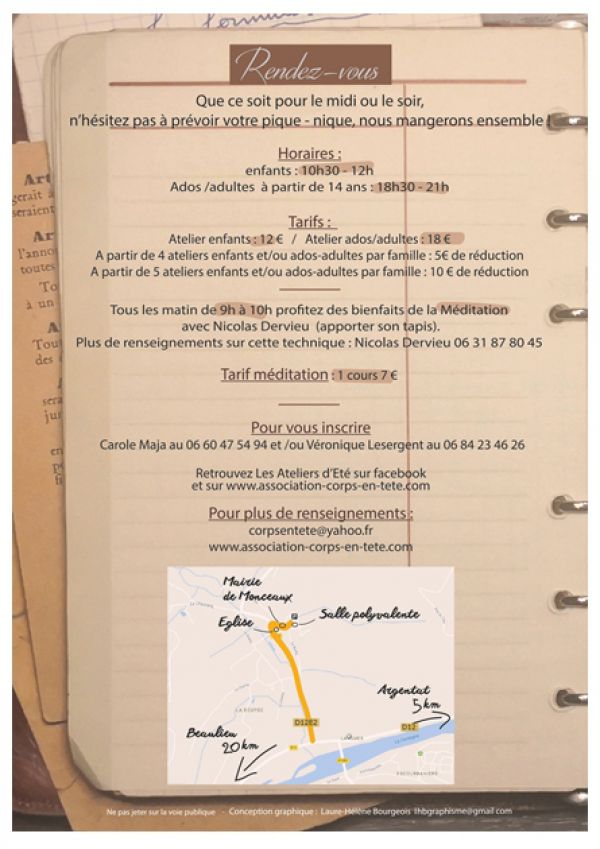 Rendez-vous
Que ce soit pour le midi ou le soir,
n'hésitez pas à prévoir votre pique - nique, nous mangerons ensemble !
Horaires :
enfants : 10h30 - 12h
Ados /adultes à partir de 14 ans : 18h30 - 21h
Tarifs :
Atelier enfants : 12 € / Atelier ados/adultes : 18 €
A partir de 4 ateliers enfants et/ou ados-adultes par famille : 5€ de réduction
A partir de 5 ateliers enfants et/ou ados-adultes par famille : 10 € de réduction
Tous les matin de 9h à 10h profitez des bienfaits de la Méditation
avec Nicolas Dervieu (apporter son tapis).
Plus de renseignements sur cette technique : Nicolas Dervieu 06 31 87 80 45
Tarif méditation : 1 cours 7 €
Pour vous inscrire
Carole Maja au 06 60 47 54 94 et /ou Véronique Lesergent au 06 84 23 46 26
Retrouvez Les Ateliers d'Eté sur facebook
et sur www.association-corps-en-tete.com
Pour plus de renseignements :
corpsentete@yahoo.fr
www.association-corps-en-tete.com
Mairie
de Monceaux
Salle polyvalente
Eglise
Argentat
5 km
D1282
D12
Beaulieu
20 km
Art
gerait à
seraient
Ar
l'anno
toutes
To
à un
A
Tou
des
jur
en
Ne pas jeter sur la voie publique - Conception graphique : Laure-Hélène Bourgeois lhbgraphisme@gmail.com